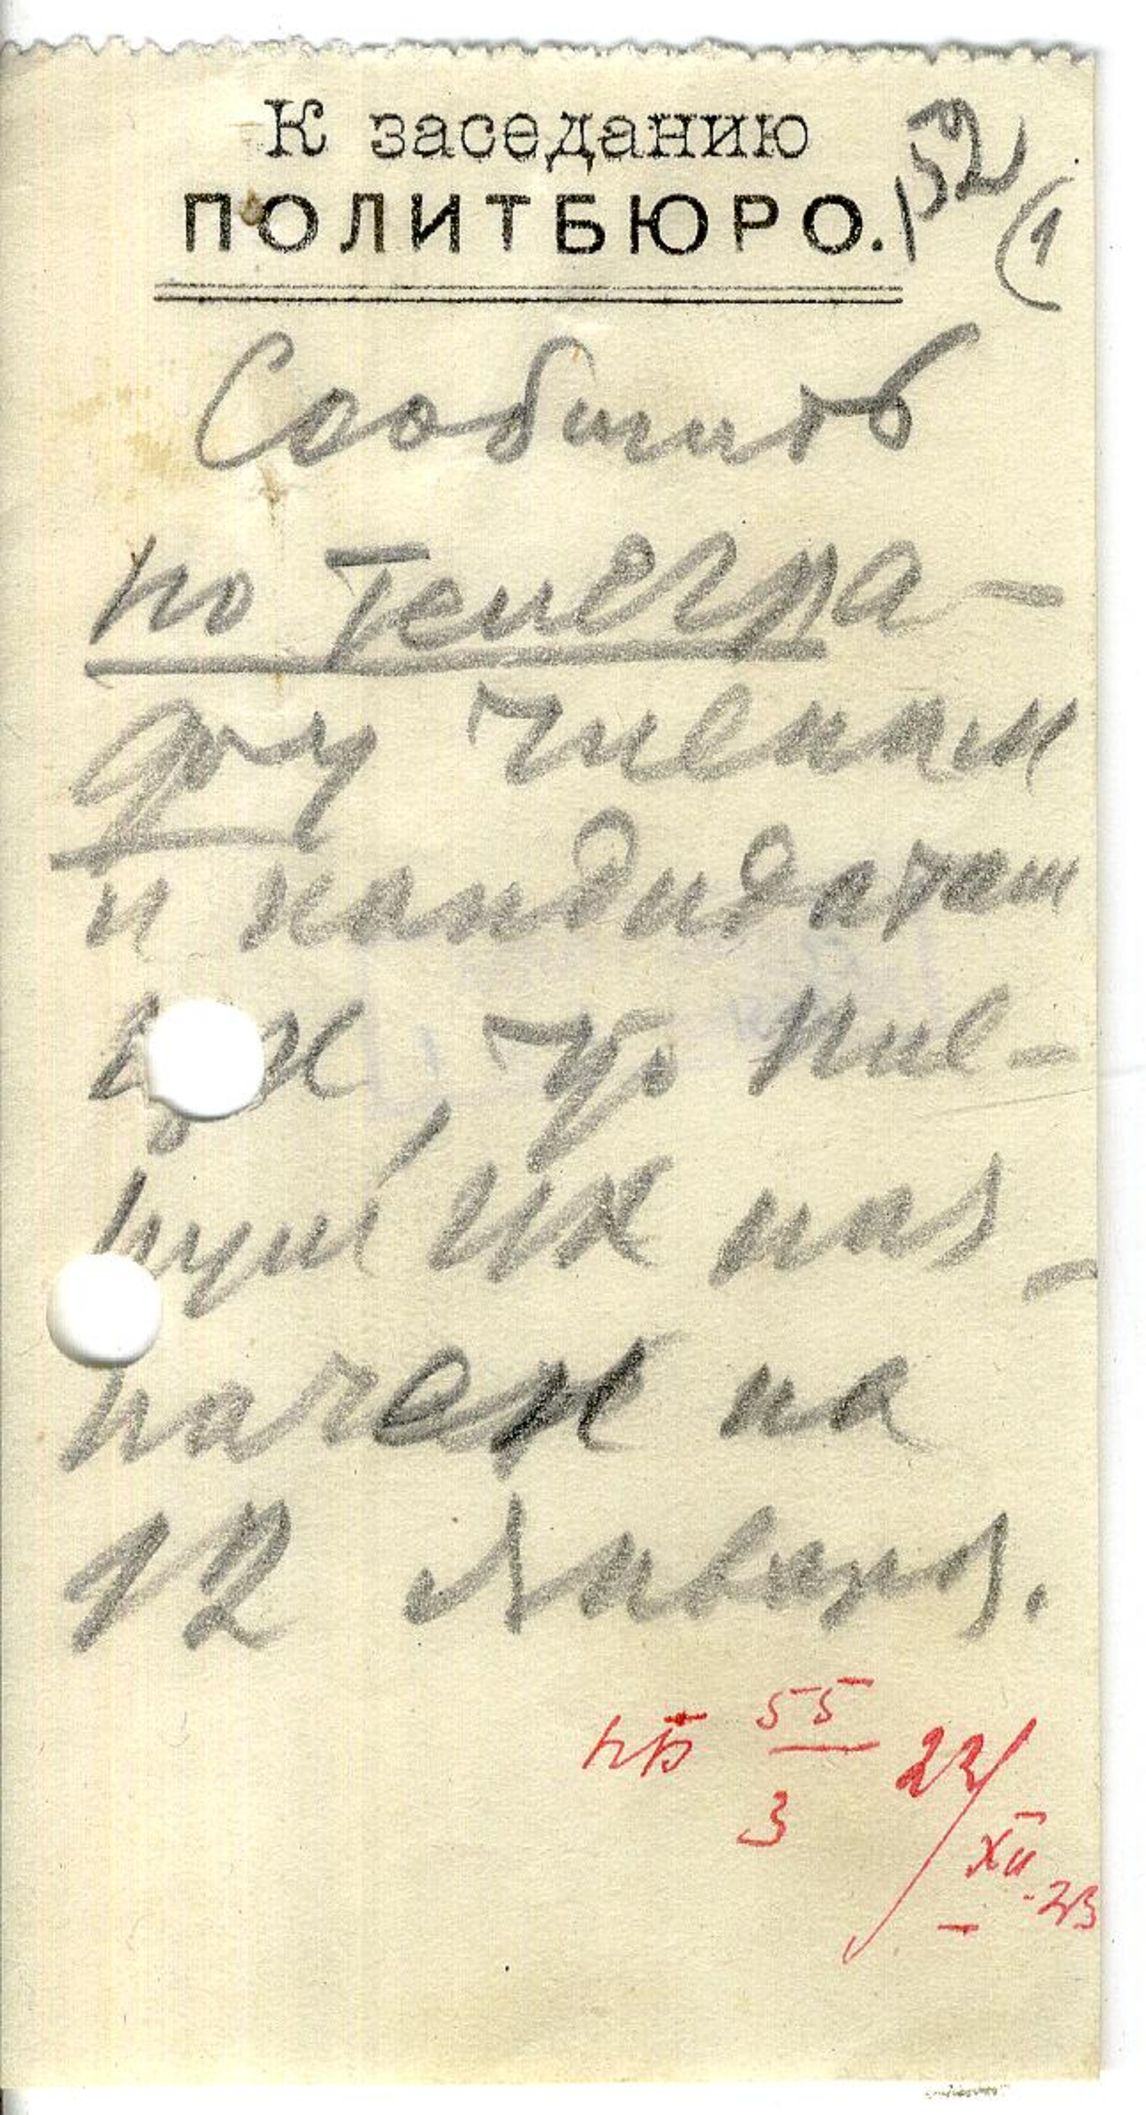 К заседанию
ПОЛИТБЮРО.
152
(1
Сообщить
по телегра-
фу членам
и кандидатам
ЦК, что пле-
нум ЦК наз-
начен на
12 января.
ПБ 55/3 22/XII-23